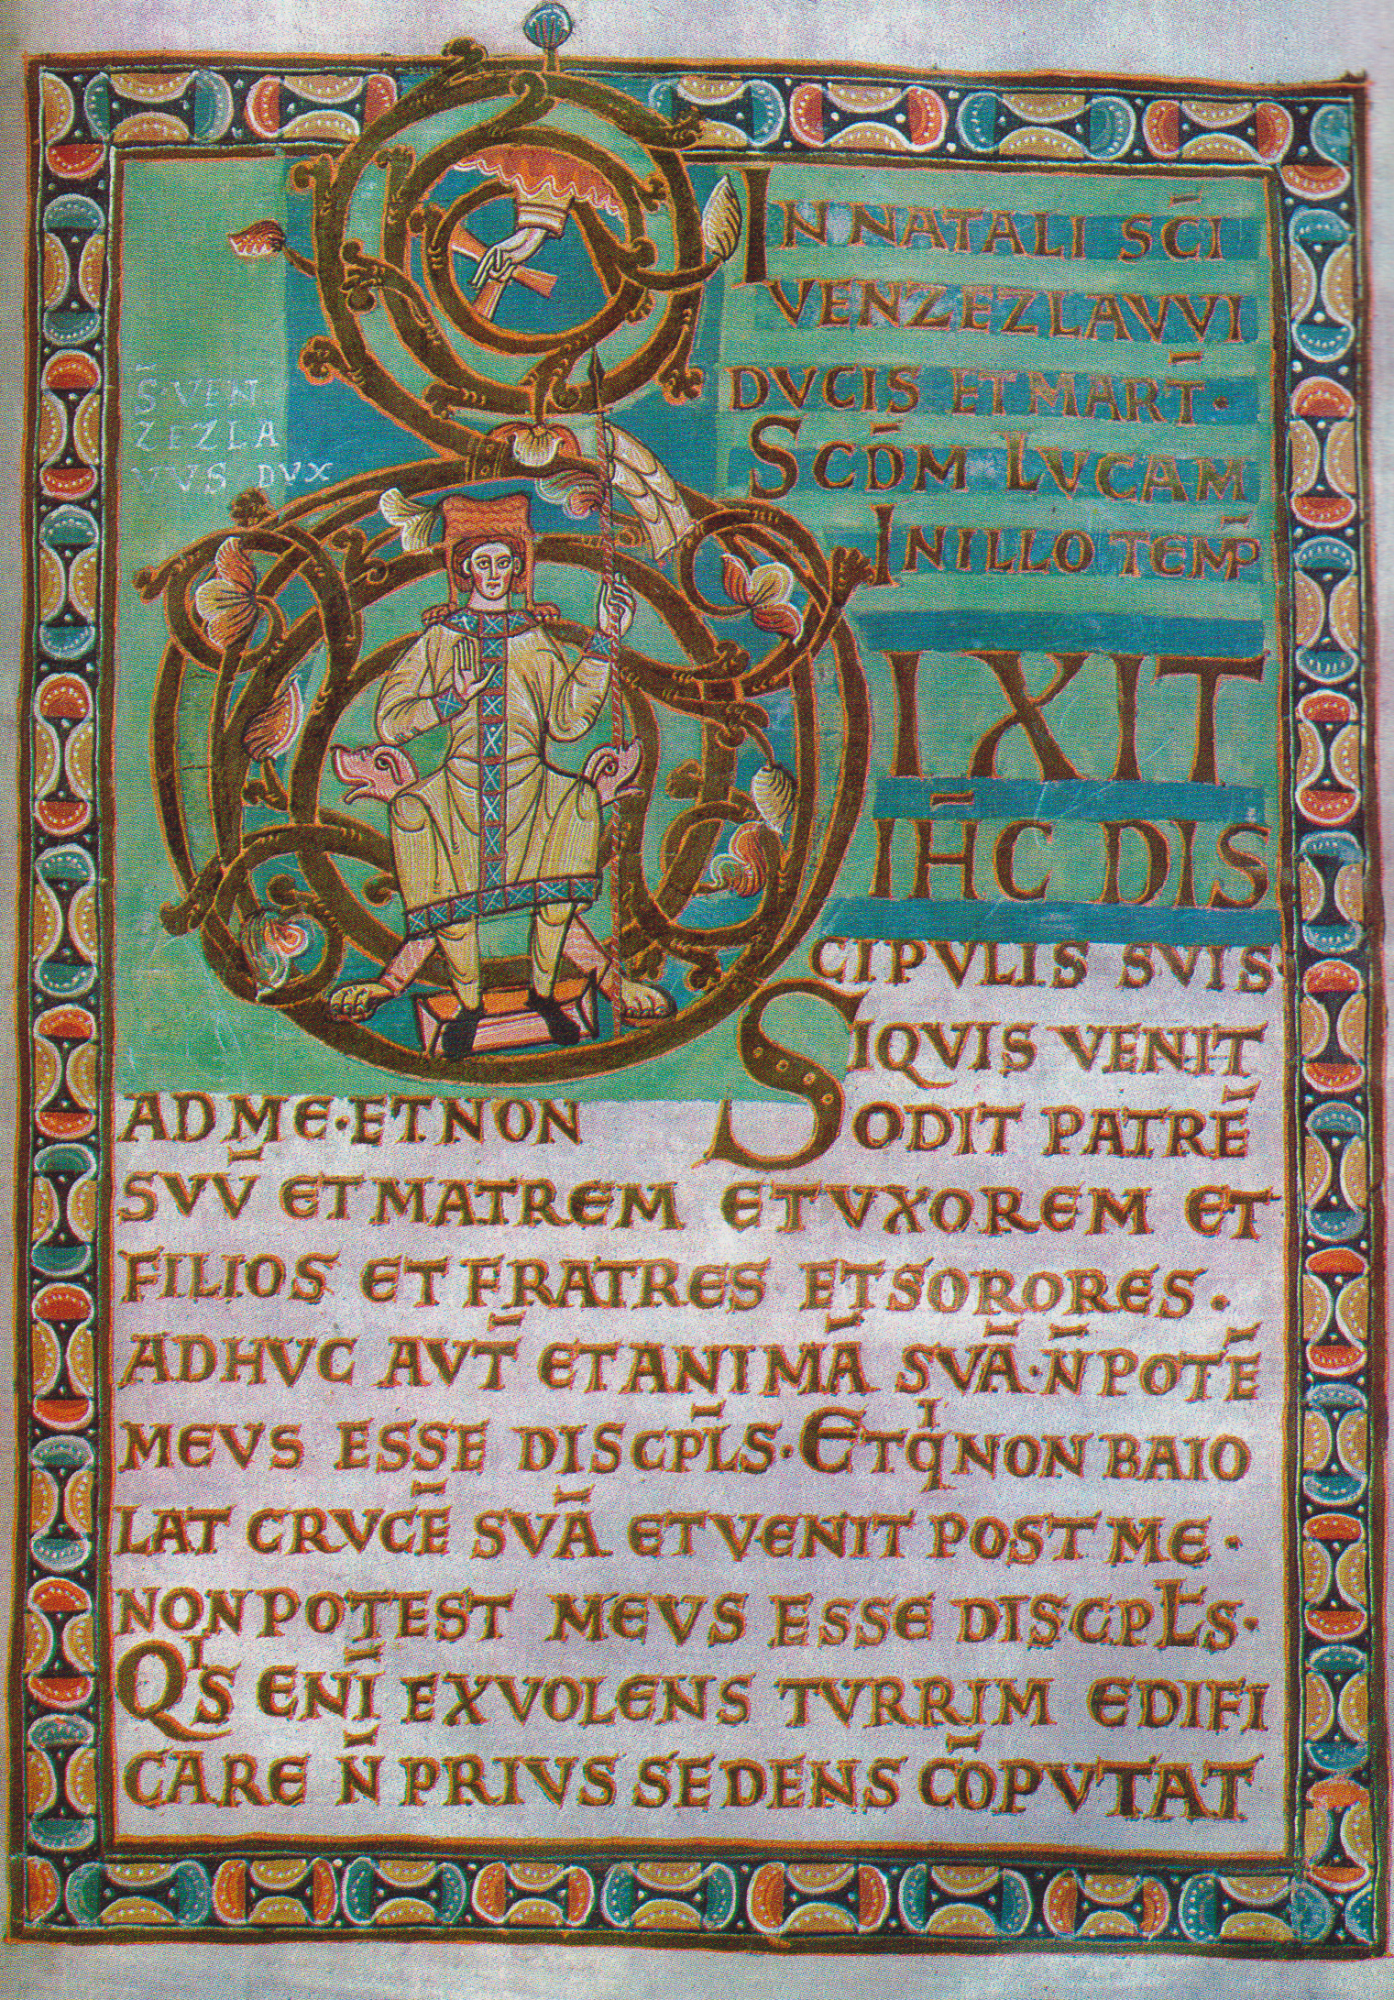 S̄ VEN
ZEZLA
VVS DVX
IN NATALI SC̄I
VENZEZLAVVI
DVCIS ET MART̄·
SCD̄M LVCAM
IN ILLO TEMP̄
IXIT
IH̄C DIS
CIPVLIS SVIS·
SIQVIS VENIT
AD ME· ET NON ODIT PATRĒ
SVV̄ ET MATREM ET VXOREM ET
FILIOS ET FRATRES ET SORORES.
ADHVC AVT̄ ET ANIMĀ SVĀ· N̄ POTĒ
MEVS ESSE DISCPL̄S· ET Qͥ NON BAIO
LAT CRVCĒ SVĀ ET VENIT POST ME·
NON POTEST MEVS ESSE DISCPL̄S·
QͥS ENĪ EX VOLENS TVRRIM EDIFI
CARE N̄ PRIVS SEDENS CŌPVTAT